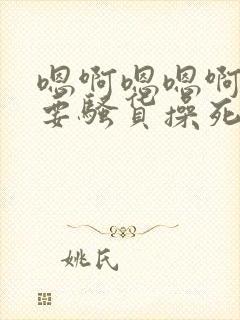 嗯啊嗯嗯啊
要骚货操死
姚氏